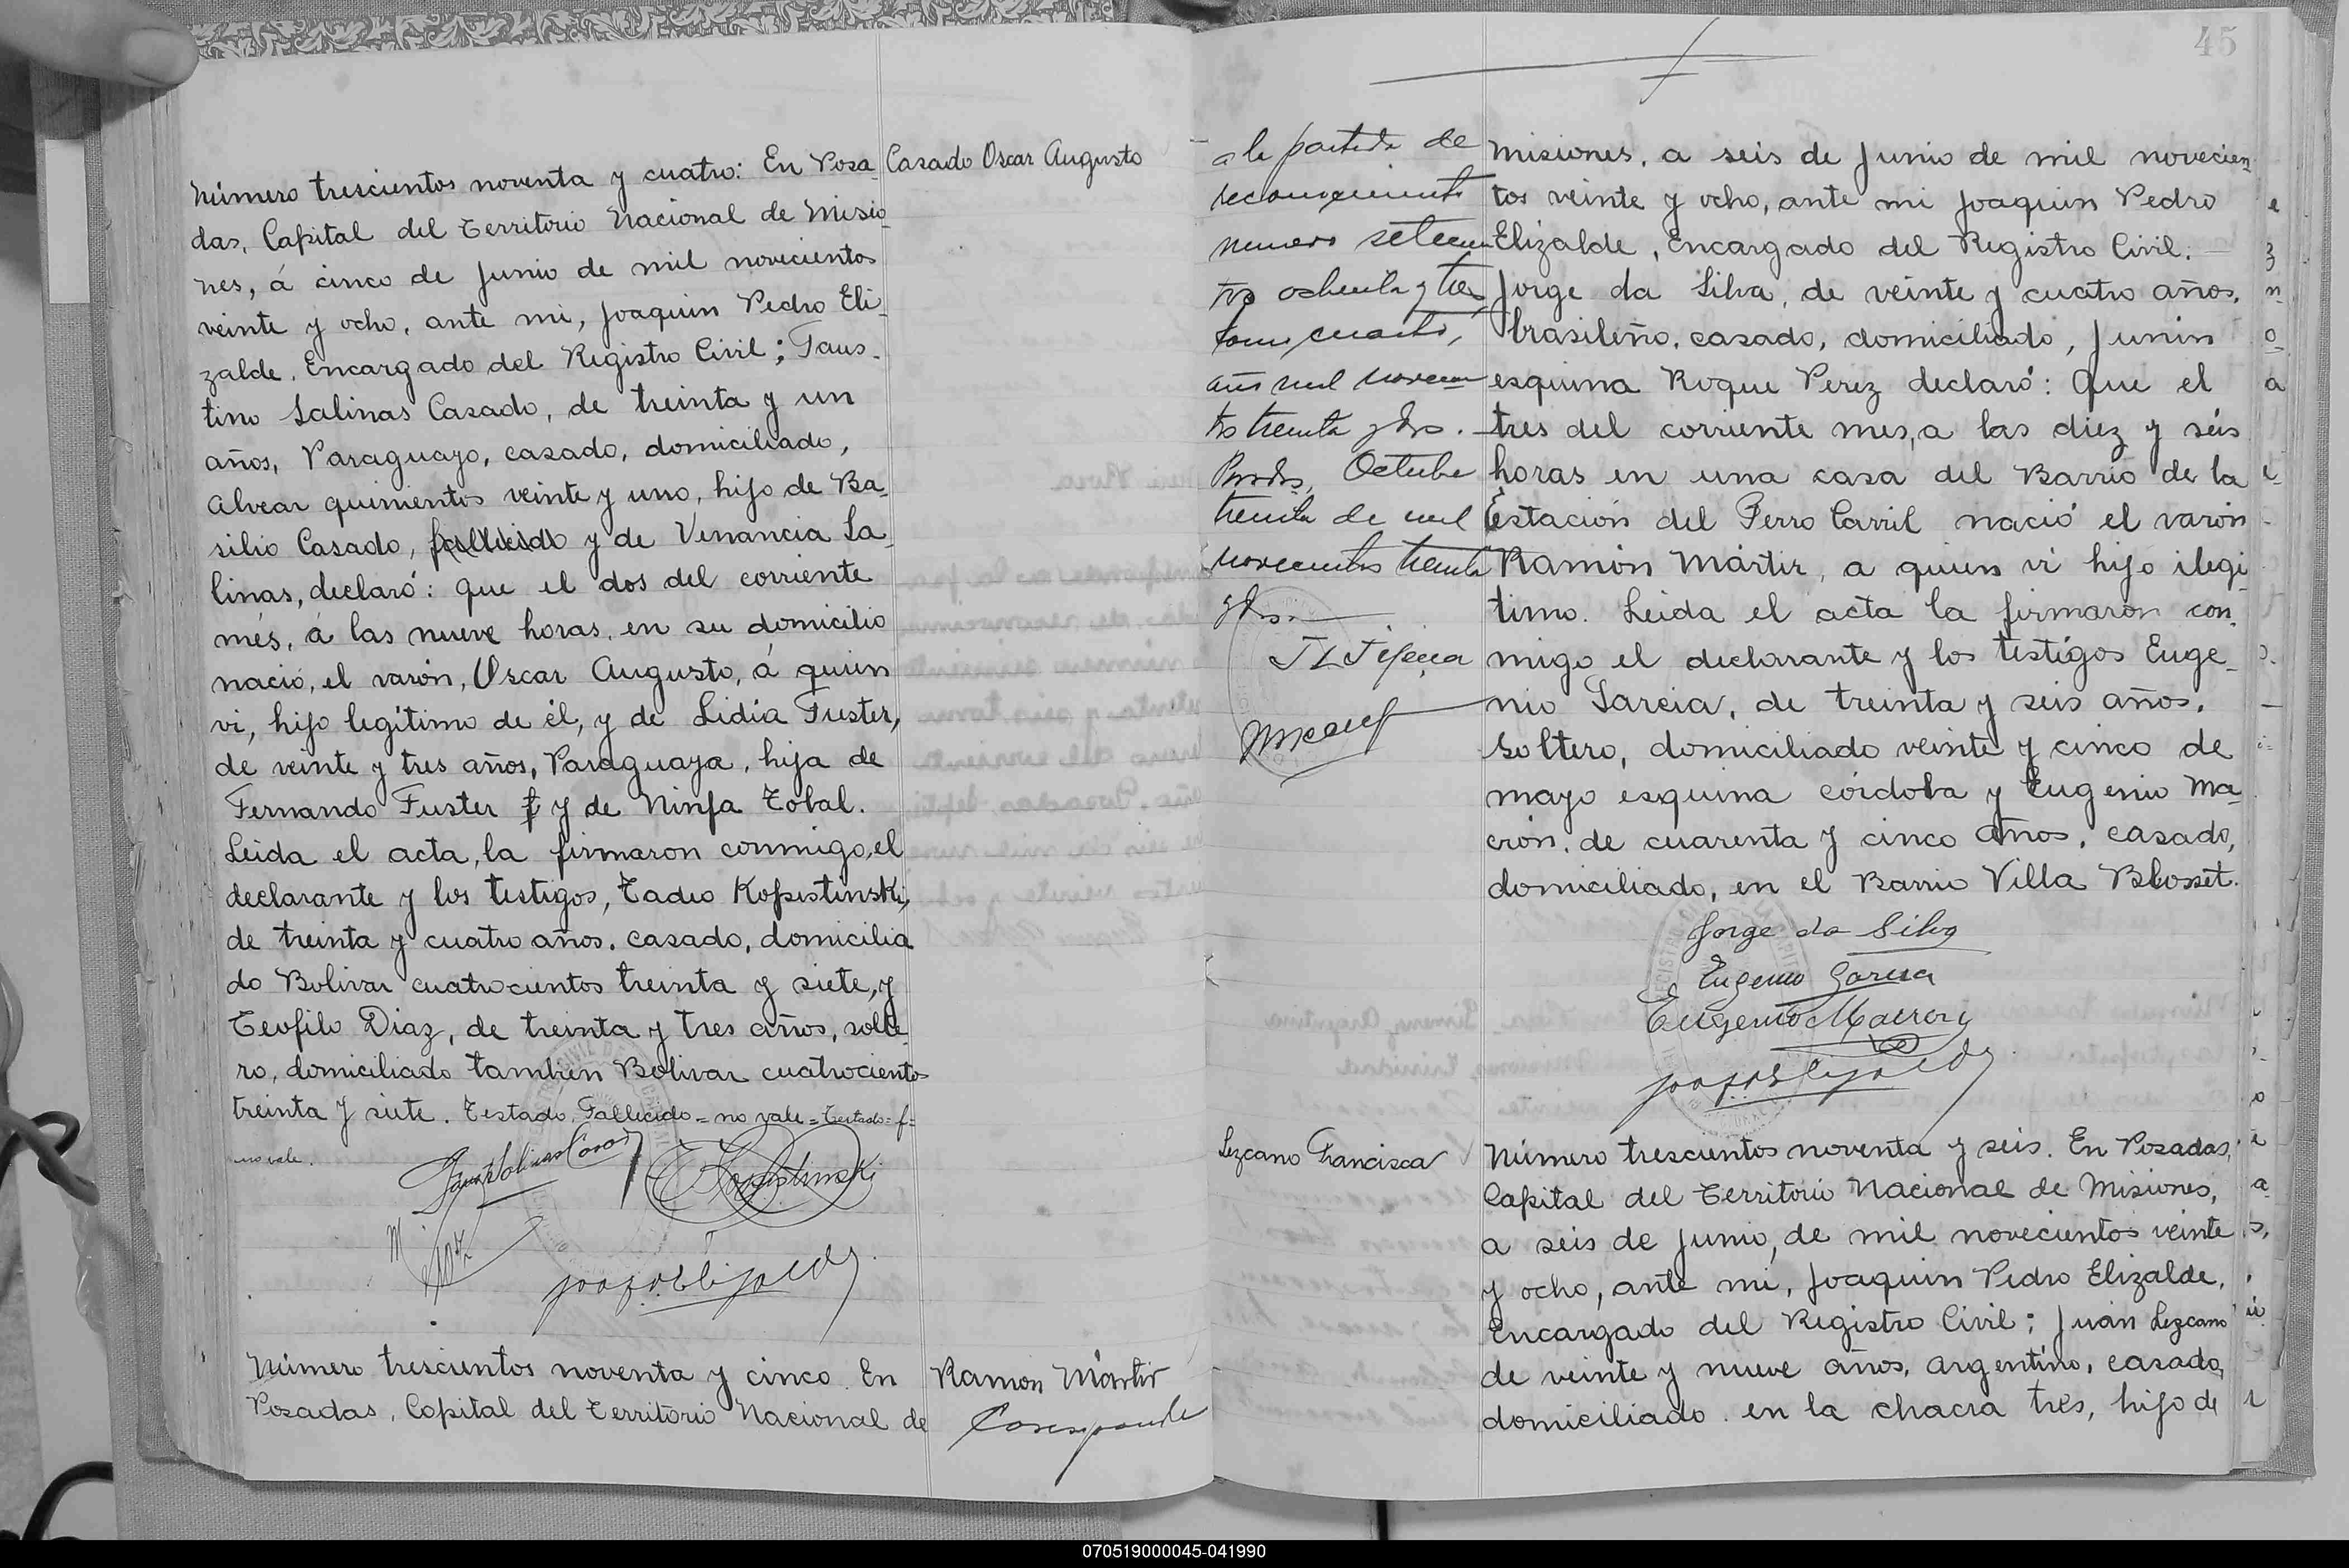 Número trescientos noventa y cuatro: En Posa
das, Capital del Territorio Nacional de Misio
nes, á cinco de Junio de mil novecientos
veinte y ocho, ante mi, Joaquin Pedro Eli
zalde, Encargado del Registro Civil; Faus-
tino Salinas Casado, de treinta y un
años, Paraguayo, casado, domiciliado,
Alvear quinientos veinte y uno, hijo de Ba
silio Casado, fallecido y de Venancia Sa
linas, declaró: Que el dos del corriente
més, á las nueve horas, en su domicilio
nació, el varón, Oscar Augusto, á quien
vi, hijo legítimo de él, y de Lidia Fuster,
de veinte y tres años, Paraguaya, hija de
Fernando Fuster f y de Ninfa Tobal.
Leida el acta, la firmaron conmigo, el
declarante y los testigos, Tadeo Kopistinski,
de treinta y cuatro años, casado, domicilia
do Bolivar cuatrocientos treinta y siete, y
Teofilo Diaz, de treinta y tres años, solte
ro, domiciliado tambien Bolivar cuatrociento
treinta y siete. Testado, Fallecido = no vale = Testado = f =
no vale.
Casado Oscar Augusto
Número trescientos noventa y cinco. En
Posadas, Capital del Territorio Nacional de
Ramon Mártir
Corresponde
45
a la partida de
reconocimiento
numero setecien
tos ochenta y tres
tomo cuarto,
año mil novecien
tos treinta y dos.
Posadas, Octubre
treinta de mil
novecientos treinta
y dos.
Misiones, a seis de Junio de mil novecien
tos veinte y ocho, ante mi Joaquin Pedro
Elizalde, Encargado del Registro Civil:
Jorge da Silva, de veinte y cuatro años,
brasileño, casado, domiciliado, Junin
esquina Roque Perez declaró: Que el
tres del corriente mes, a las diez y séis
horas en una casa del Barrio de la
Estación del Ferro Carril nació el varón
Ramón Mártir, a quien vi hijo ilegi
timo. Leida el acta la firmarón con
migo el declarante y los testigos Euge
nio Garcia, de treinta y seis años,
soltero, domiciliado veinte y cinco de
mayo esquina córdoba y Eugenio Ma
cron, de cuarenta y cinco años, casado,
domiciliado, en el Barrio Villa Blosset.
Jorge da Silva
Eugenio Garcia
Lezcano Francisca
Número trescientos noventa y seis. En Posadas,
Capital del Territorio Nacional de Misiones,
a seis de Junio, de mil novecientos veinte
y ocho, ante mi, Joaquin Pedro Elizalde,
Encargado del Registro Civil; Juan Lezcano
de veinte y nueve años, argentino, casado,
domiciliado en la chacra tres, hijo de
070519000045-041990